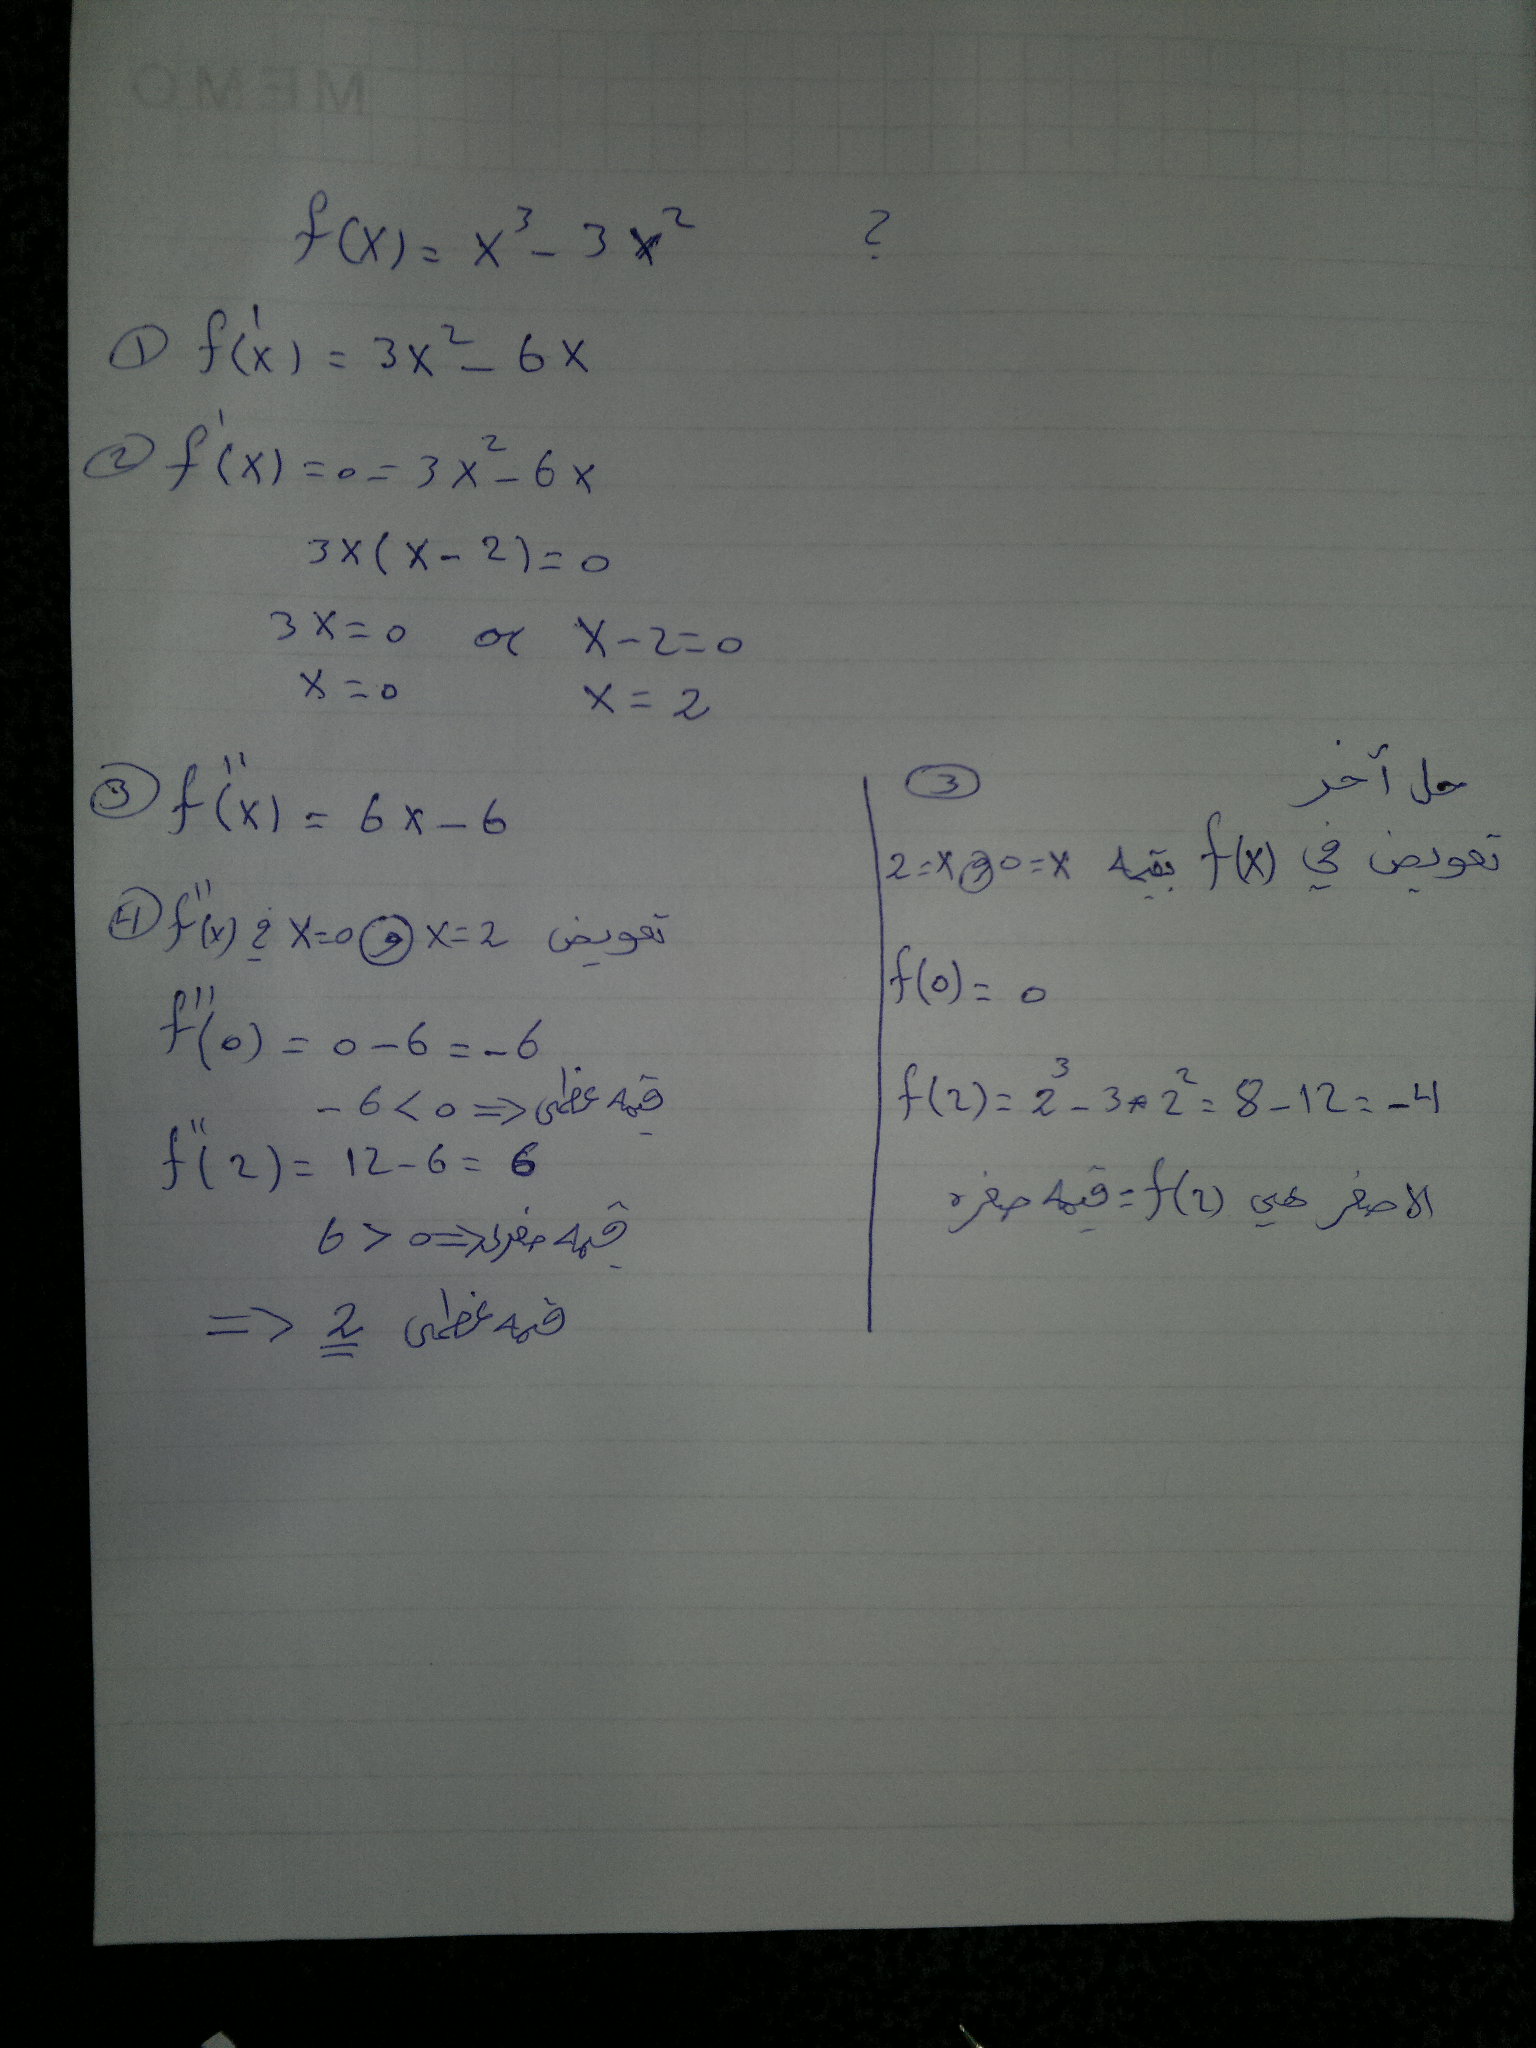 MEMO
f(x) = x³ - 3x² ?
① f'(x) = 3x² - 6x
② f'(x) = 0 = 3x² - 6x
3x(x - 2) = 0
3x = 0 or x - 2 = 0
x = 0 x = 2
③ f''(x) = 6x - 6
④ f''(x) في x=0 و x=2 تعويض
f''(0) = 0 - 6 = -6
-6 < 0 => قيمه عظمى
f''(2) = 12 - 6 = 6
6 > 0 => قيمه صغرى
=> 2 قيمه عظمى
③ حل آخر
تعويض في f(x) بقيمه x=0 و x=2
f(0) = 0
f(2) = 2³ - 3*2² = 8 - 12 = -4
الاصغر هي f(2) = قيمه صغره